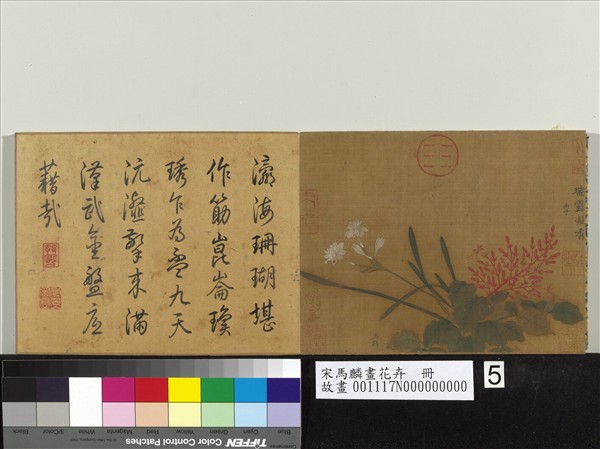 瀛海珊瑚堪
作筯崑崙瓊
琇乍為盃九天
沆瀣擎来滿
漢武金盤底
藉哉
宋馬麟畫花卉 冊
故畫 001117N000000000
5
TIFFEN Color Control Patches
Blue Cyan Green Yellow Red Magenta White 3/Color Black